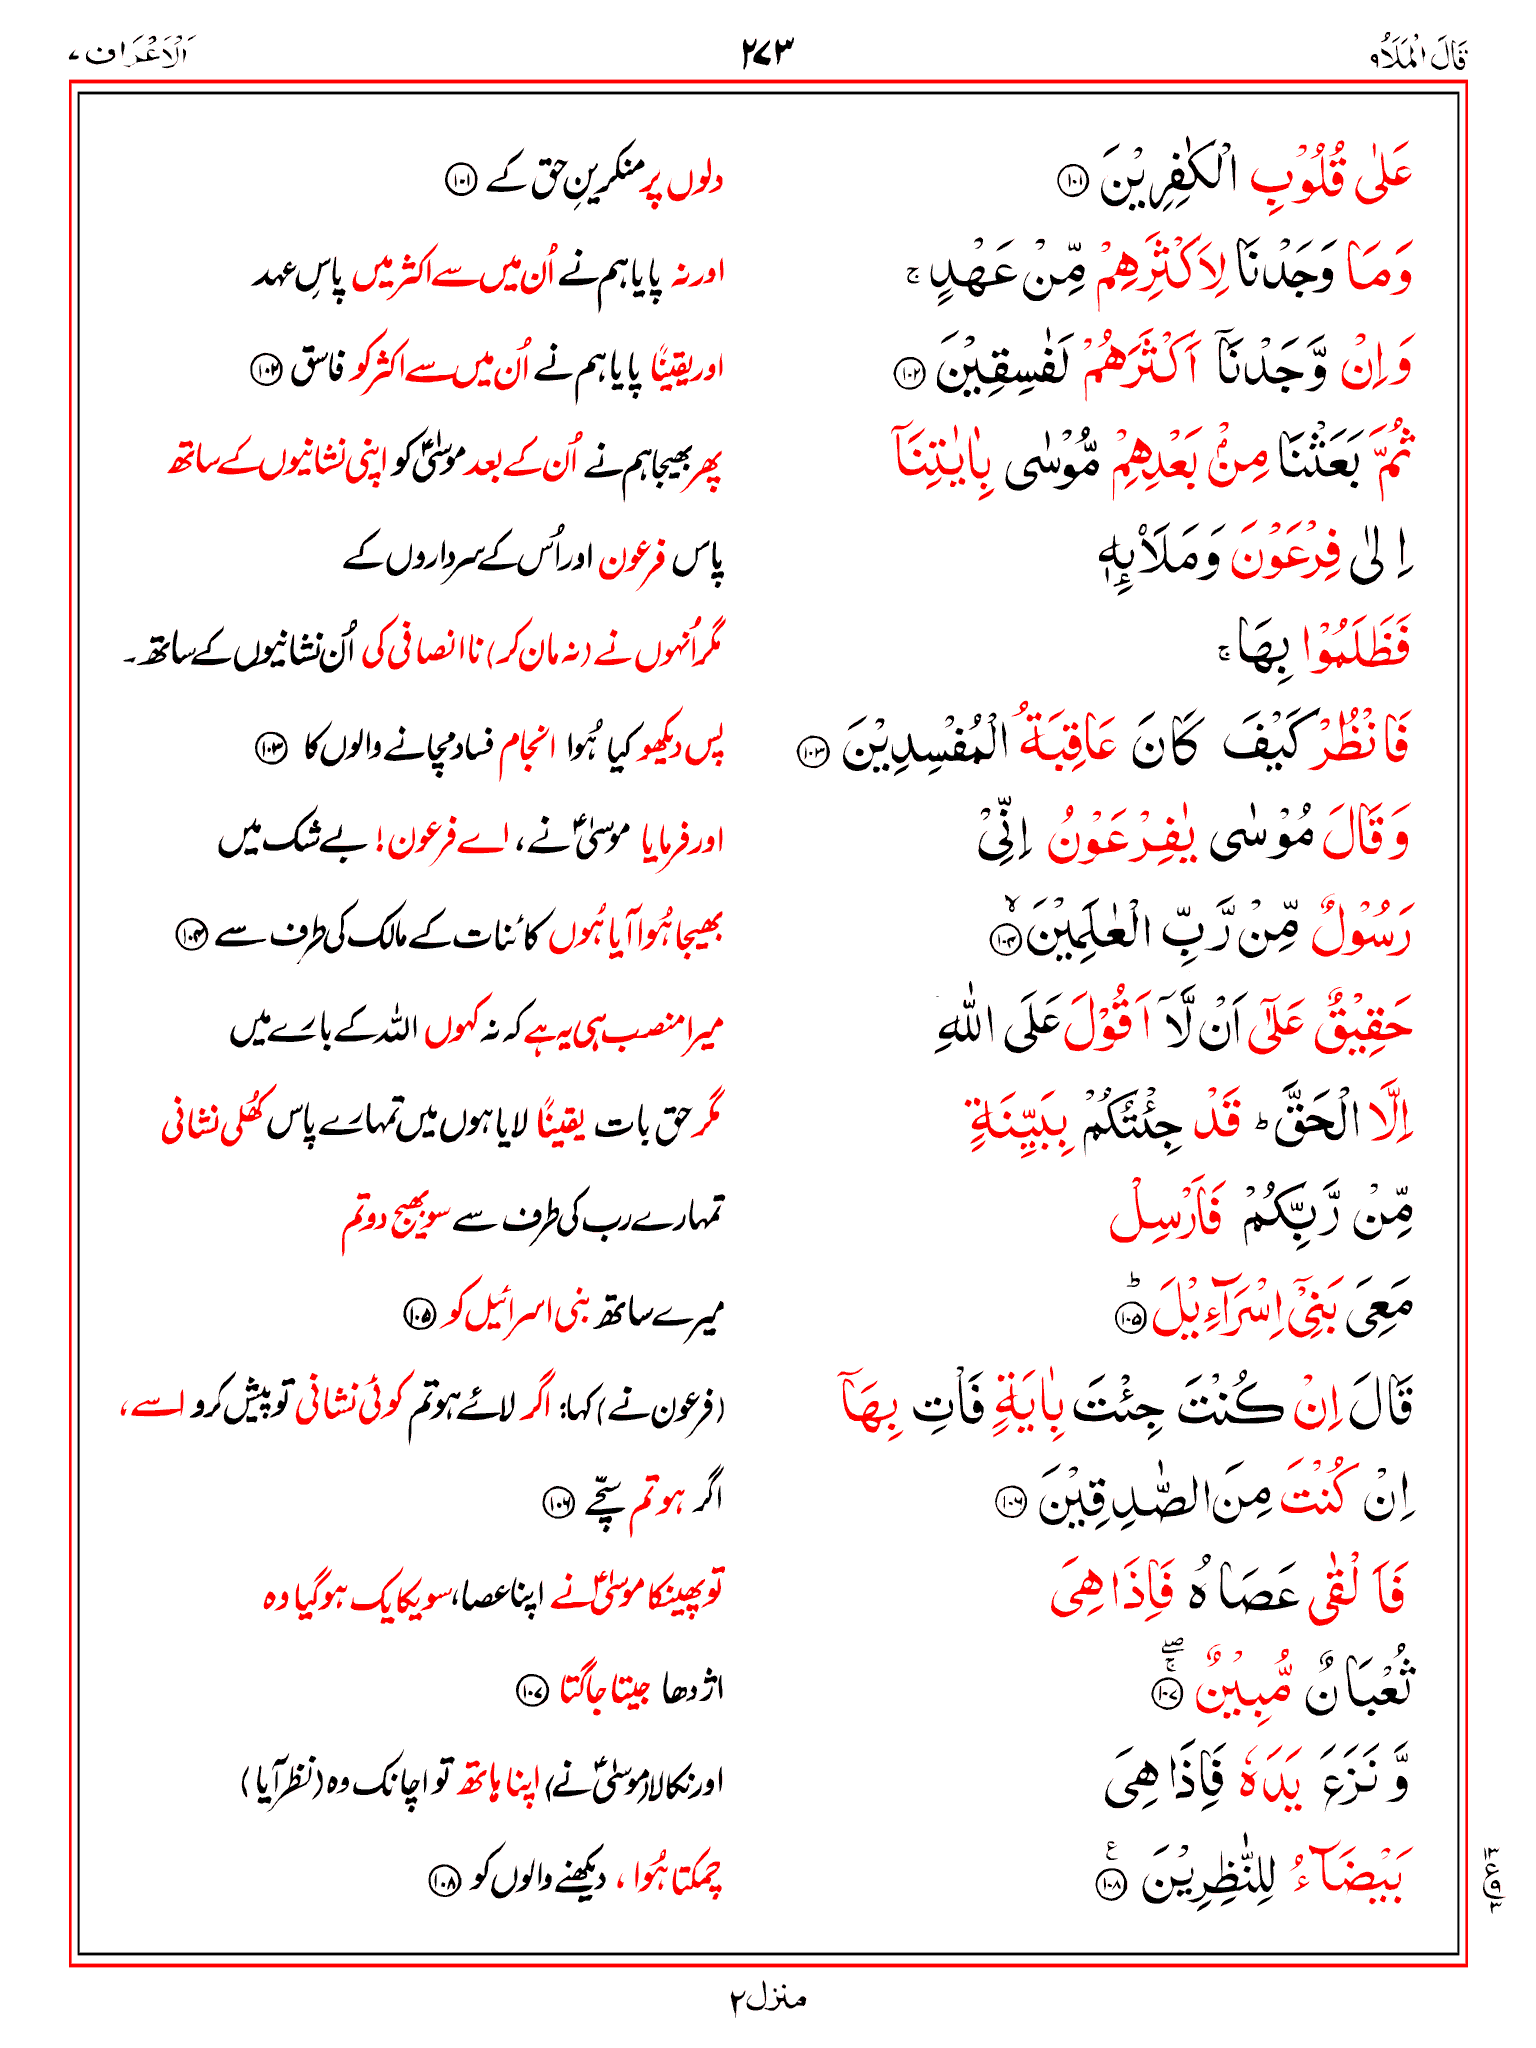 قَالَ الْمَلَاُ ٩
٢٧٣
اَلْاَعْرَاف ٧
عَلٰى قُلُوْبِ الْكٰفِرِيْنَ ١٠١
دلوں پر منکرینِ حق کے ١٠١
وَمَا وَجَدْنَا لِاَكْثَرِهِمْ مِّنْ عَهْدٍ ۚ
اور نہ پایا ہم نے اُن میں سے اکثر میں پاسِ عہد
وَاِنْ وَّجَدْنَآ اَكْثَرَهُمْ لَفٰسِقِيْنَ ١٠٢
اور یقیناً پایا ہم نے اُن میں سے اکثر کو فاسق ١٠٢
ثُمَّ بَعَثْنَا مِنْۢ بَعْدِهِمْ مُّوْسٰى بِاٰيٰتِنَآ
پھر بھیجا ہم نے اُن کے بعد موسٰیؑ کو اپنی نشانیوں کے ساتھ
اِلٰى فِرْعَوْنَ وَمَلَا۟ئِهٖ
پاس فرعون اور اُس کے سرداروں کے
فَظَلَمُوْا بِهَا ۚ
مگر اُنہوں نے (نہ مان کر) ناانصافی کی اُن نشانیوں کے ساتھ۔
فَانْظُرْ كَيْفَ كَانَ عَاقِبَةُ الْمُفْسِدِيْنَ ١٠٣
پس دیکھو کیا ہُوا انجام فساد مچانے والوں کا ١٠٣
وَقَالَ مُوْسٰى يٰفِرْعَوْنُ اِنِّىْ
اور فرمایا موسٰیؑ نے، اے فرعون! بے شک میں
رَسُوْلٌ مِّنْ رَّبِّ الْعٰلَمِيْنَ ۙ ١٠٤
بھیجا ہُوا آیا ہُوں کائنات کے مالک کی طرف سے ١٠٤
حَقِيْقٌ عَلٰٓى اَنْ لَّآ اَقُوْلَ عَلَى اللّٰهِ
میرا منصب ہی یہ ہے کہ نہ کہوں اللہ کے بارے میں
اِلَّا الْحَقَّ ؕ قَدْ جِئْتُكُمْ بِبَيِّنَةٍ
مگر حق بات یقیناً لایا ہوں میں تمہارے پاس کھُلی نشانی
مِّنْ رَّبِّكُمْ فَاَرْسِلْ
تمہارے رب کی طرف سے سو بھیج دو تم
مَعِىَ بَنِىْٓ اِسْرَآءِيْلَ ؕ ١٠٥
میرے ساتھ بنی اسرائیل کو ١٠٥
قَالَ اِنْ كُنْتَ جِئْتَ بِاٰيَةٍ فَاْتِ بِهَآ
(فرعون نے) کہا: اگر لائے ہو تم کوئی نشانی تو پیش کرو اسے،
اِنْ كُنْتَ مِنَ الصّٰدِقِيْنَ ١٠٦
اگر ہو تم سچّے ١٠٦
فَاَلْقٰى عَصَاهُ فَاِذَا هِىَ
تو پھینکا موسٰیؑ نے اپنا عصا، سو یکایک ہوگیا وہ
ثُعْبَانٌ مُّبِيْنٌ ۚۖ ١٠٧
اژدھا جیتا جاگتا ١٠٧
وَّنَزَعَ يَدَهٗ فَاِذَا هِىَ
اور نکالا (موسٰیؑ نے) اپنا ہاتھ تو اچانک وہ (نظر آیا)
بَيْضَآءُ لِلنّٰظِرِيْنَ ١٠٨ ع
چمکتا ہُوا، دیکھنے والوں کو ١٠٨
منزل ٢